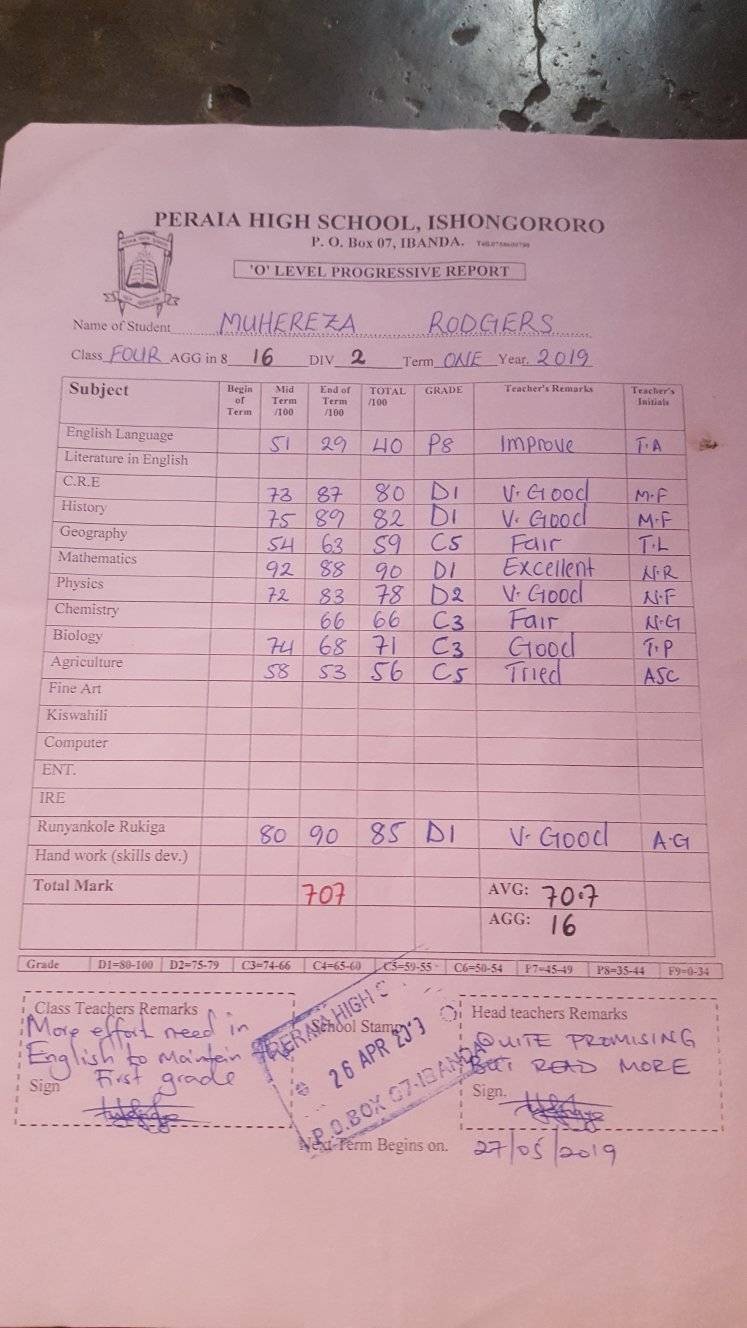 PERAIA HIGH SCHOOL, ISHONGORORO
P. O. Box 07, IBANDA.
'O' LEVEL PROGRESSIVE REPORT
Name of Student MUHEREZA RODGERS
Class FOUR AGG in 8 16 DIV 2 Term ONE Year. 2019
Subject Begin of Term Mid Term /100 End of Term /100 TOTAL /100 GRADE Teacher's Remarks Teacher's Initials
English Language 51 29 40 P8 Improve T.A
Literature in English
C.R.E 73 87 80 D1 V. Good M.F
History 75 89 82 D1 V. Good M.F
Geography 54 63 59 C5 Fair T.L
Mathematics 92 88 90 D1 Excellent N.R
Physics 72 83 78 D2 V. Good N.F
Chemistry 66 66 C3 Fair N.G
Biology 74 68 71 C3 Good T.P
Agriculture 58 53 56 C5 Tried ASC
Fine Art
Kiswahili
Computer
ENT.
IRE
Runyankole Rukiga 80 90 85 D1 V. Good A.G
Hand work (skills dev.)
Total Mark 707 AVG: 70.7
AGG: 16
Grade D1=80-100 D2=75-79 C3=74-66 C4=65-60 C5=59-55 C6=50-54 P7=45-49 P8=35-44 F9=0-34
Class Teachers Remarks
More effort need in
English to maintain
First grade
Sign
School Stamp
PERAIA HIGH S
26 APR
P.O.BOX 07-IBANDA
Head teachers Remarks
QUITE PROMISING
BUT READ MORE
Sign.
Next Term Begins on. 27/05/2019